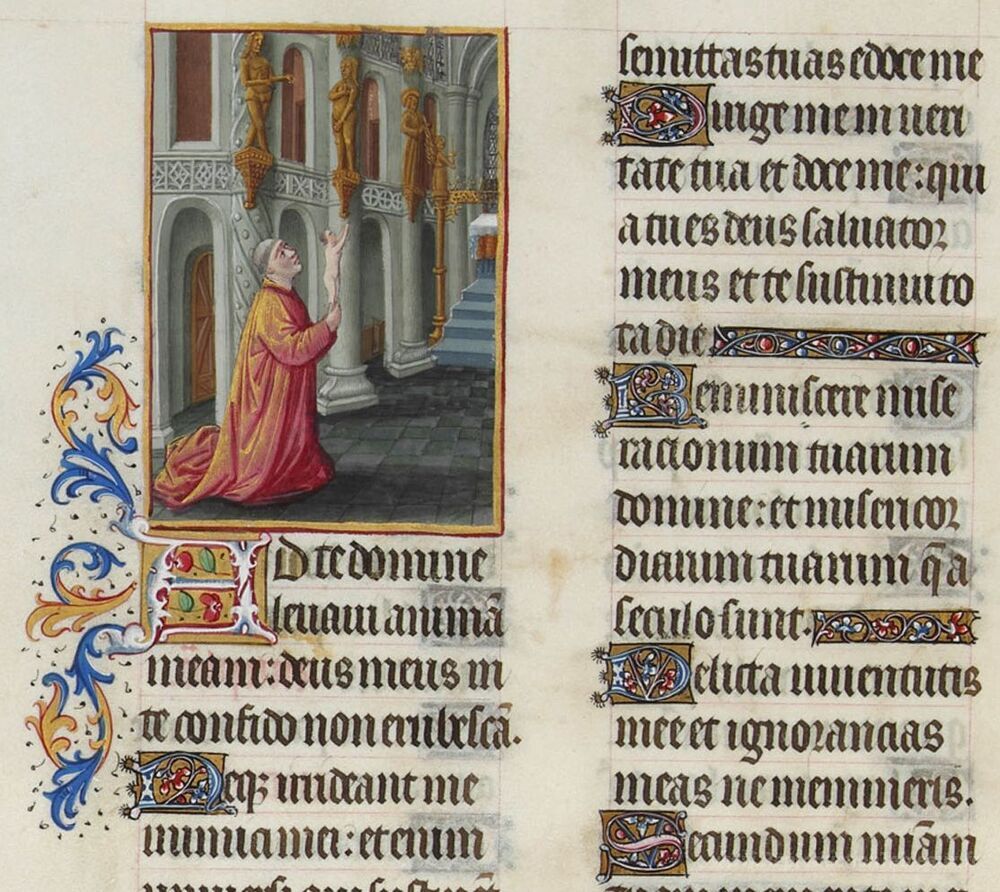 AD te domine
levavi animā
meam: deus meus in
te confido non erubescā.
Neqꝫ irrideant me
inimici mei: etenim
universi qui sustinēt
semittas tuas edoce me
Dirige me in veri
tate tua et doce me: qui
a tu es deus salvator
meus et te sustinui to
ta die
Reminiscere mise
racionum tuarum
domine: et misericor
diarum tuarum q̄ a
seculo sunt.
Delicta iuventutis
mee et ignorancias
meas ne memineris.
Secundum miāam